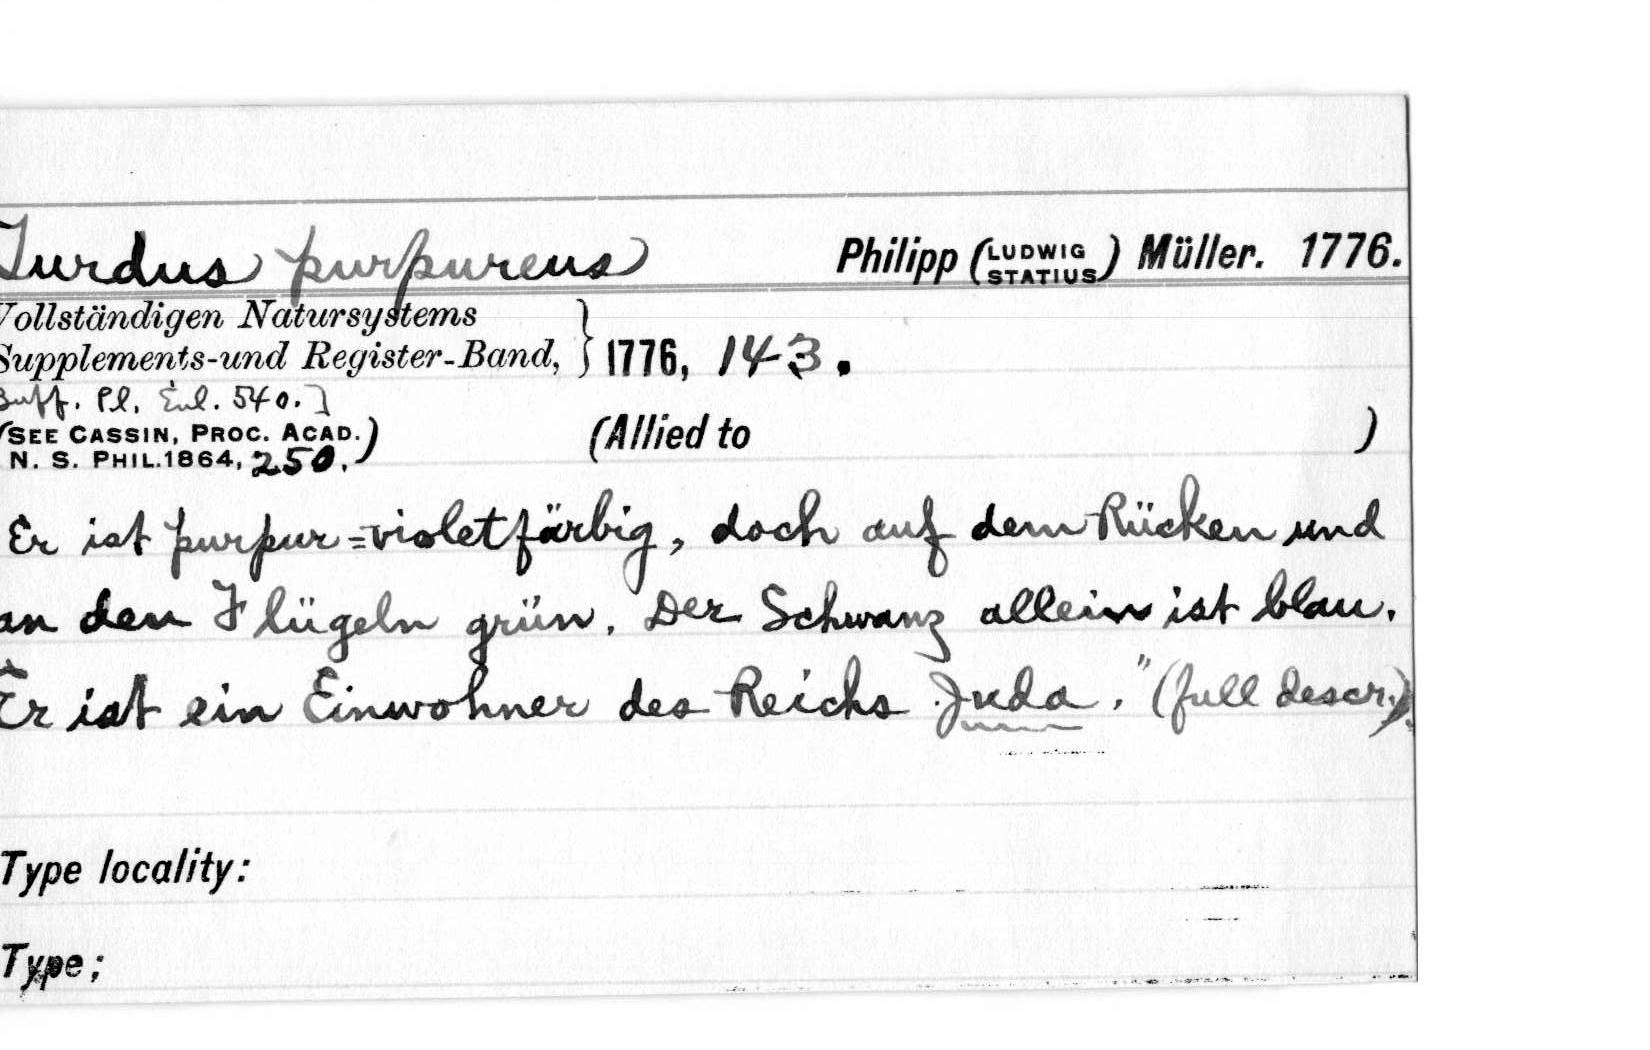 Turdus purpureus Philipp (LUDWIG STATIUS) Müller. 1776.
Vollständigen Natursystems
Supplements-und Register-Band, } 1776, 143.
Buff. Pl. Enl. 540.]
(SEE CASSIN, PROC. ACAD. N. S. PHIL. 1864, 250.) (Allied to )
Er ist purpur=violetfärbig, doch auf dem Rücken und
an den Flügeln grün. Der Schwanz allein ist blau.
Er ist ein Einwohner des Reichs Juda." (full descr.)
Type locality:
Type;